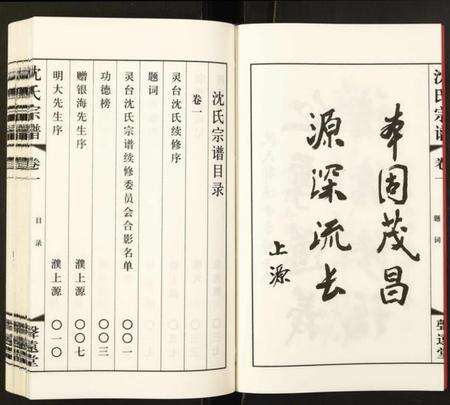 沈氏宗谱
卷一
题词
聲遠堂
本固茂昌
源深流长
上源
沈氏宗谱目录
卷一
灵台沈氏续修序
题词
灵台沈氏宗谱续修委员会合影名单 〇〇一
功德榜 〇〇三
赠银海先生序 濮上源 〇〇七
明大先生序 濮上源 〇一〇
沈氏宗谱
卷一
目录
聲遠堂